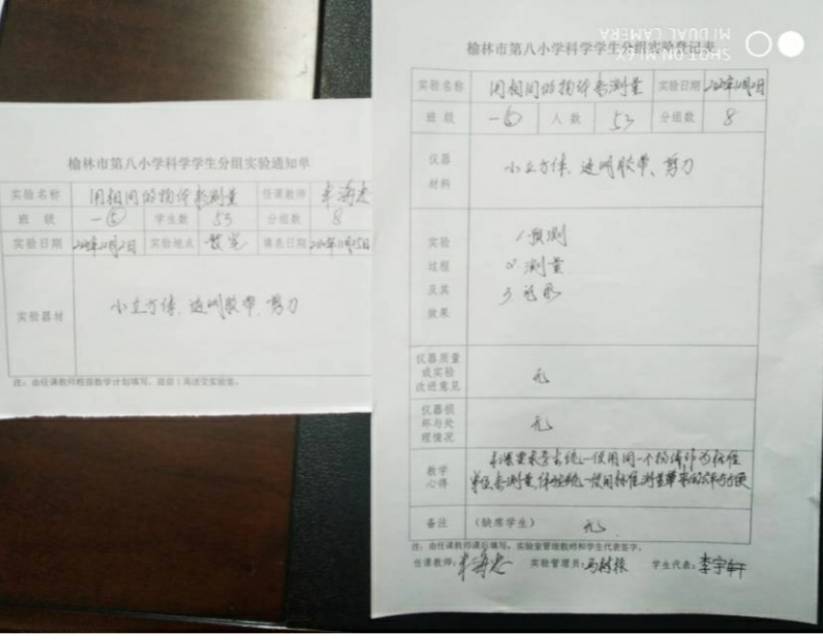 榆林市第八小学科学学生分组实验通知单
实验名称 用相同的物体来测量 任课教师
班级 一⑤ 学生数 53 分组数 8
实验日期 实验地点 教室 填表日期
实验器材 小立方体、透明胶带、剪刀
注：由任课教师根据教学计划填写，提前1周送交实验室。
SHOT ON MI 6X
MI DUAL CAMERA
榆林市第八小学科学学生分组实验登记表
实验名称 用相同的物体来测量 实验日期
班级 一⑤ 人数 53 分组数 8
仪器
材料
小立方体、透明胶带、剪刀
实验
过程
及其
效果
1 预测
2 测量
3 记录
仪器质量
或实验
改进意见
无
仪器损
坏与处
理情况
无
教学
心得
统一使用同一个物体作为标准
单位来测量,体验统一使用标准测量带来的
备注 (缺席学生) 无
注：由任课教师课后填写，实验室管理教师和学生代表签字。
任课教师: 实验管理员: 学生代表: 李宇轩